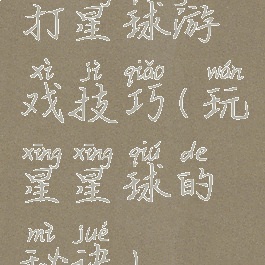 打星球游
xì jì qiǎo wán
戏技巧(玩
xīng xīng qiú de
星星球的
mì jué